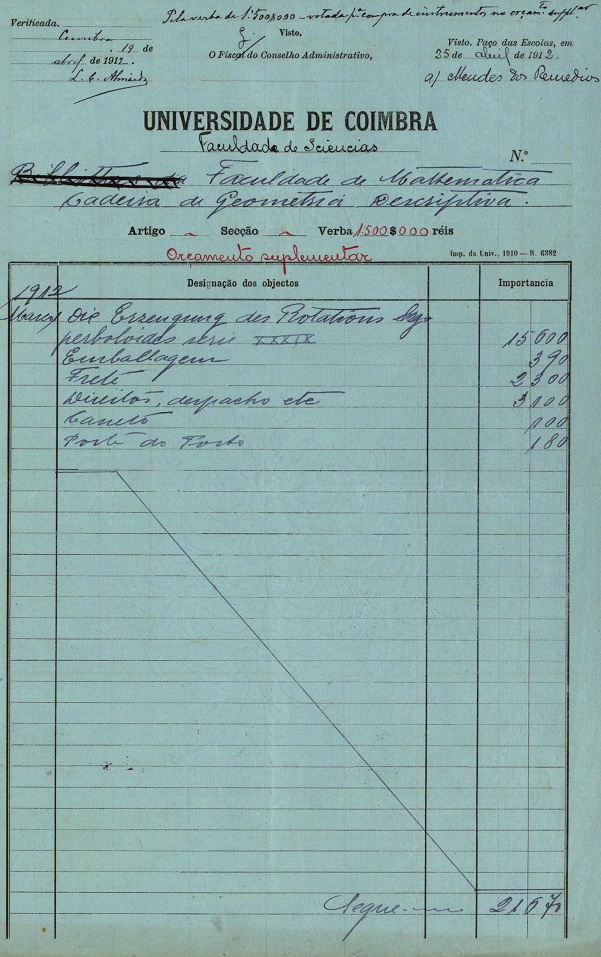 Pela verba de 1:500$000 - votada pª compra de instrumentos no orçamto suppl.ar
Verificada.
Coimbra
19 de
abril de 1912.
L. C. Almeida
Visto.
O Fiscal do Conselho Administrativo,
Visto. Paço das Escolas, em
25 de abril de 1912.
a) Mendes dos Remedios
UNIVERSIDADE DE COIMBRA
Faculdade de Sciencias
N.º
Faculdade de Mathematica
Cadeira de Geometria Descriptiva.
Artigo ~ Secção ~ Verba 1:500$000 réis
Orçamento suplementar
Imp. da Univ., 1910 — R. 6382
Designação dos objectos Importancia
1912
Março Die Erzengung des Rotations hy-
perboloides serie XXXIX 15600
Emballagem 390
Frete 2300
Direitos, despacho etc 3100
Caneto 100
Porte do Porto 180
Segue 21670